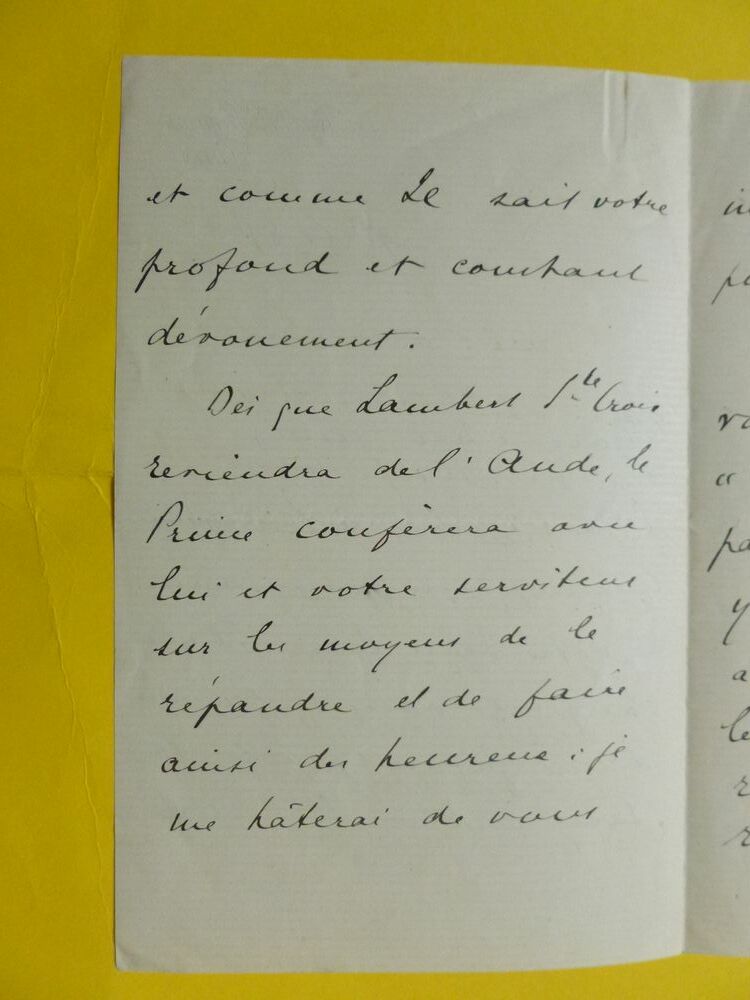 et comme Il sait votre
profond et constant
dévouement.
Dès que Lambert Ste Croix
reviendra de l'Aude, le
Prince conférera avec
lui et votre serviteur
sur les moyens de le
répandre et de faire
ainsi des heureux : je
me hâterai de vous